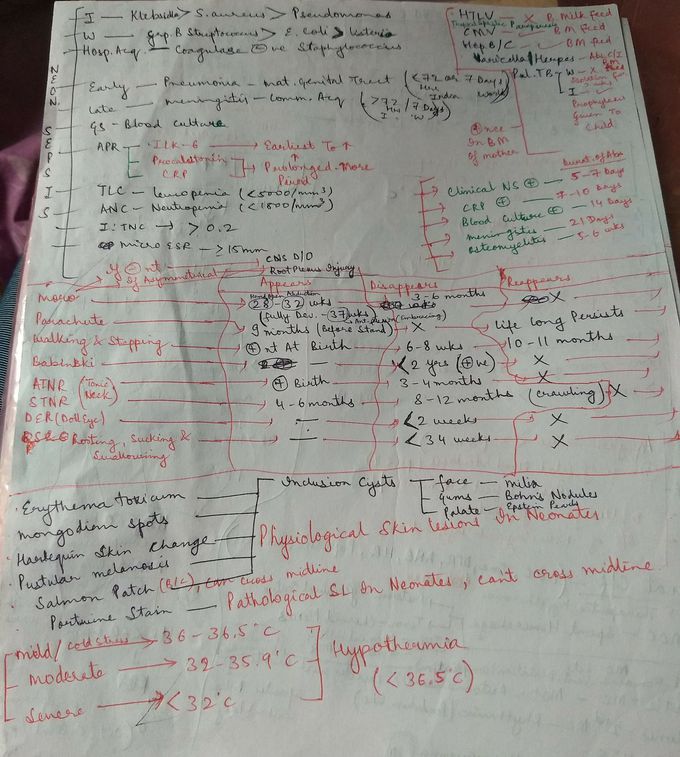 I - Klebsiella > S. aureus > Pseudomonas
W - Grp. B Streptococcus > E. coli > Listeria
Hosp. Acq - Coagulase ⊖ve Staphylococcus
NEON. SEPSIS
Early - Pneumonia - mat. Genital Tract (<72 Hrs / 7 Days)
India World
late - meningitis - Comm. Acq (>72 Hrs / 7 Days)
I W
GS - Blood culture
APR - ILK-6 → Earliest To ↑
Procalcitonin
CRP → Prolonged. More Period
TLC - Leucopenia (<5000/mm3)
ANC - Neutropenia (<1800/mm3)
I:TNC → > 0.2
micro ESR - ≥15mm
HTLV X B. Milk feed
CMV - B M Feed
Hep. B/C - BM feed
Varicella/Herpes
Pul. TB - W - X
I -
Prophylaxis
Given To
Child
⊕nce
In BM
of mother
Durat. of Abx
Clinical NS ⊕ - 5-7 Days
CRP ⊕ - 7-10 Days
Blood Culture ⊕ - 14 Days
meningitis - 21 Days
Osteomyelitis - 5-6 wks
If ⊖nt → CNS D/O
If Asymmetrical → Root Plexus Injury
Appears Disappears Reappears
Moro → 28-32 wks 3-6 months X
(fully Dev. - 37 wks)
Parachute → 9 months (Before Stand) X life long Persists
Walking & Stepping → ⊕nt At Birth 6-8 wks 10-11 months
Babinski → < 2 yrs (⊕ve) X
ATNR (Tonic Neck) → ⊕ Birth 3-4 months X
STNR → 4-6 months 8-12 months (crawling) X
DER (Doll Eye) - < 2 weeks X
Rooting, Sucking & Swallowing - < 34 weeks X
Inclusion Cysts - face - milia
Gums - Bohn's Nodules
Palate - Epstein Pearls
· Erythema Toxicum
mongolian spots
· Harlequin Skin Change
· Pustular melanosis
Physiological Skin lesions In Neonates
· Salmon Patch (B/L), can cross midline
· Portwine Stain - Pathological SL In Neonates, can't cross midline
mild/cold stress → 36-36.5°C
moderate → 32-35.9°C
Severe → <32°C
Hypothermia
(<36.5°C)